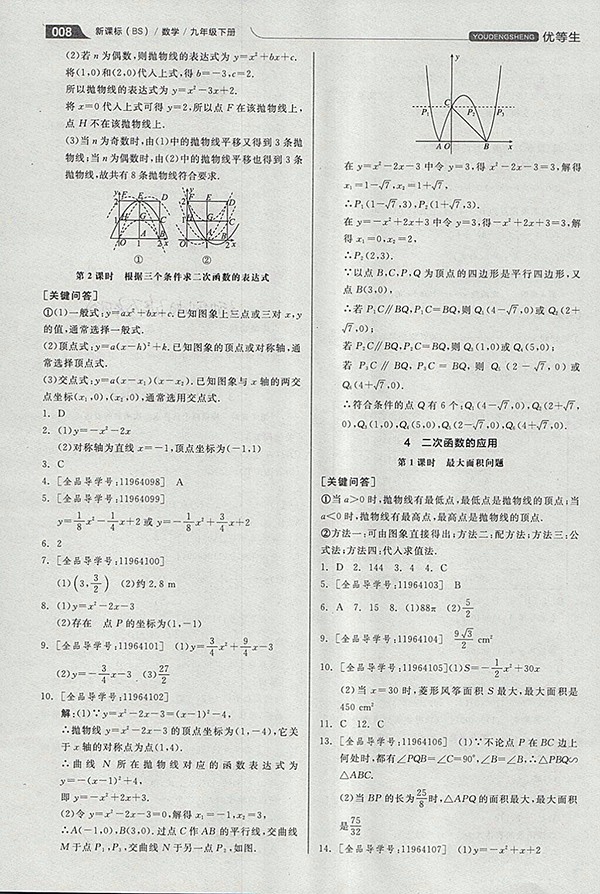 008 新课标(BS)/数学/九年级下册
YOUDENGSHENG 优等生
(2)若 n 为偶数,则抛物线的表达式为 y=x²+bx+c.
将(1,0)和(2,0)代入上式,得 b=-3,c=2.
所以抛物线的表达式为 y=x²-3x+2.
将 x=0 代入上式可得 y=2,所以点 F 在该抛物线上,
点 H 不在该抛物线上.
(3)当 n 为奇数时,由(1)中的抛物线平移又得到 3 条抛
物线;当 n 为偶数时,由(2)中的抛物线平移也得到 3 条
抛物线,故共有 8 条抛物线符合要求.
① ②
第 2 课时 根据三个条件求二次函数的表达式
[关键问答]
①(1)一般式:y=ax²+bx+c.已知图象上三点或三对 x,y
的值,通常选择一般式.
(2)顶点式:y=a(x-h)²+k.已知图象的顶点或对称轴,通
常选择顶点式.
(3)交点式:y=a(x-x₁)(x-x₂).已知图象与 x 轴的两交
点坐标(x₁,0),(x₂,0),通常选用交点式.
1. D
2. (1)y=-x²-2x
(2)对称轴为直线 x=-1,顶点坐标为(-1,1)
3. C
4. [全品导学号:11964098] A
5. [全品导学号:11964099]
y=1/8x²-1/4x+2 或 y=-1/8x²+3/4x+2
6. 2
7. [全品导学号:11964100]
(1)(3,3/2) (2)约 2.8 m
8. (1)y=x²-2x-3
(2)存在 点 P 的坐标为(1,-1)
9. [全品导学号:11964101] (1)y=3/4x²+9/4x-3
(2)y=-3/4x-3 (3)27/2
10. [全品导学号:11964102]
解:(1)∵y=x²-2x-3=(x-1)²-4,
∴抛物线 y=x²-2x-3 的顶点坐标为(1,-4),它关
于 x 轴的对称点为点(1,4).
∴曲线 N 所在抛物线对应的函数表达式为
y=-(x-1)²+4,
即 y=-x²+2x+3.
(2)令 y=x²-2x-3=0,解得 x₁=-1,x₂=3,
∴A(-1,0),B(3,0).过点 C 作 AB 的平行线,交曲线
M 于点 P₁,P₃,交曲线 N 于另一点 P₂,如图.
y
P₁ C P₂ P₃
A O B x
在 y=x²-2x-3 中令 y=3,得 x²-2x-3=3,解得
x₁=1-√7,x₂=1+√7,
∴P₁(1-√7,3),P₃(1+√7,3).
在 y=-x²+2x+3 中令 y=3,得-x²+2x+3=3,解
得 x₁=0,x₂=2,
∴P₂(2,3).
∵以点 B,C,P,Q 为顶点的四边形是平行四边形,又
点 B(3,0),
∴若 P₁C∥BQ,P₁C=BQ,则 Q₁(4-√7,0)或 Q₂(2+
√7,0);
若 P₂C∥BQ,P₂C=BQ,则 Q₃(1,0)或 Q₄(5,0);
若 P₃C∥BQ,P₃C=BQ,则 Q₅(2-√7,0)或
Q₆(4+√7,0).
∴符合条件的点 Q 有 6 个:Q₁(4-√7,0),Q₂(2+√7,
0),Q₃(1,0),Q₄(5,0),Q₅(2-√7,0),Q₆(4+√7,0).
4 二次函数的应用
第 1 课时 最大面积问题
[关键问答]
①当 a>0 时,抛物线有最低点,最低点是抛物线的顶点;当
a<0 时,抛物线有最高点,最高点是抛物线的顶点.
②方法一:可由图象直接得出;方法二:配方法;方法三:公
式法;方法四:代入求值法.
1. D 2. 144 3. 4 4. C
5. [全品导学号:11964103] B
6. A 7. 15 8. (1)88π (2)5/2
9. [全品导学号:11964104] 9√3/2 cm²
10. [全品导学号:11964105](1)S=-1/2x²+30x
(2)当 x=30 时,菱形风筝面积 S 最大,最大面积是
450 cm²
11. C 12. C
13. [全品导学号:11964106] (1)∵不论点 P 在 BC 边上
何处时,都有∠PQB=∠C=90°,∠B=∠B,∴△PBQ∽
△ABC.
(2)当 BP 的长为25/8时,△APQ 的面积最大,最大面积
是75/32
14. [全品导学号:11964107] (1)y=-x²+x+2